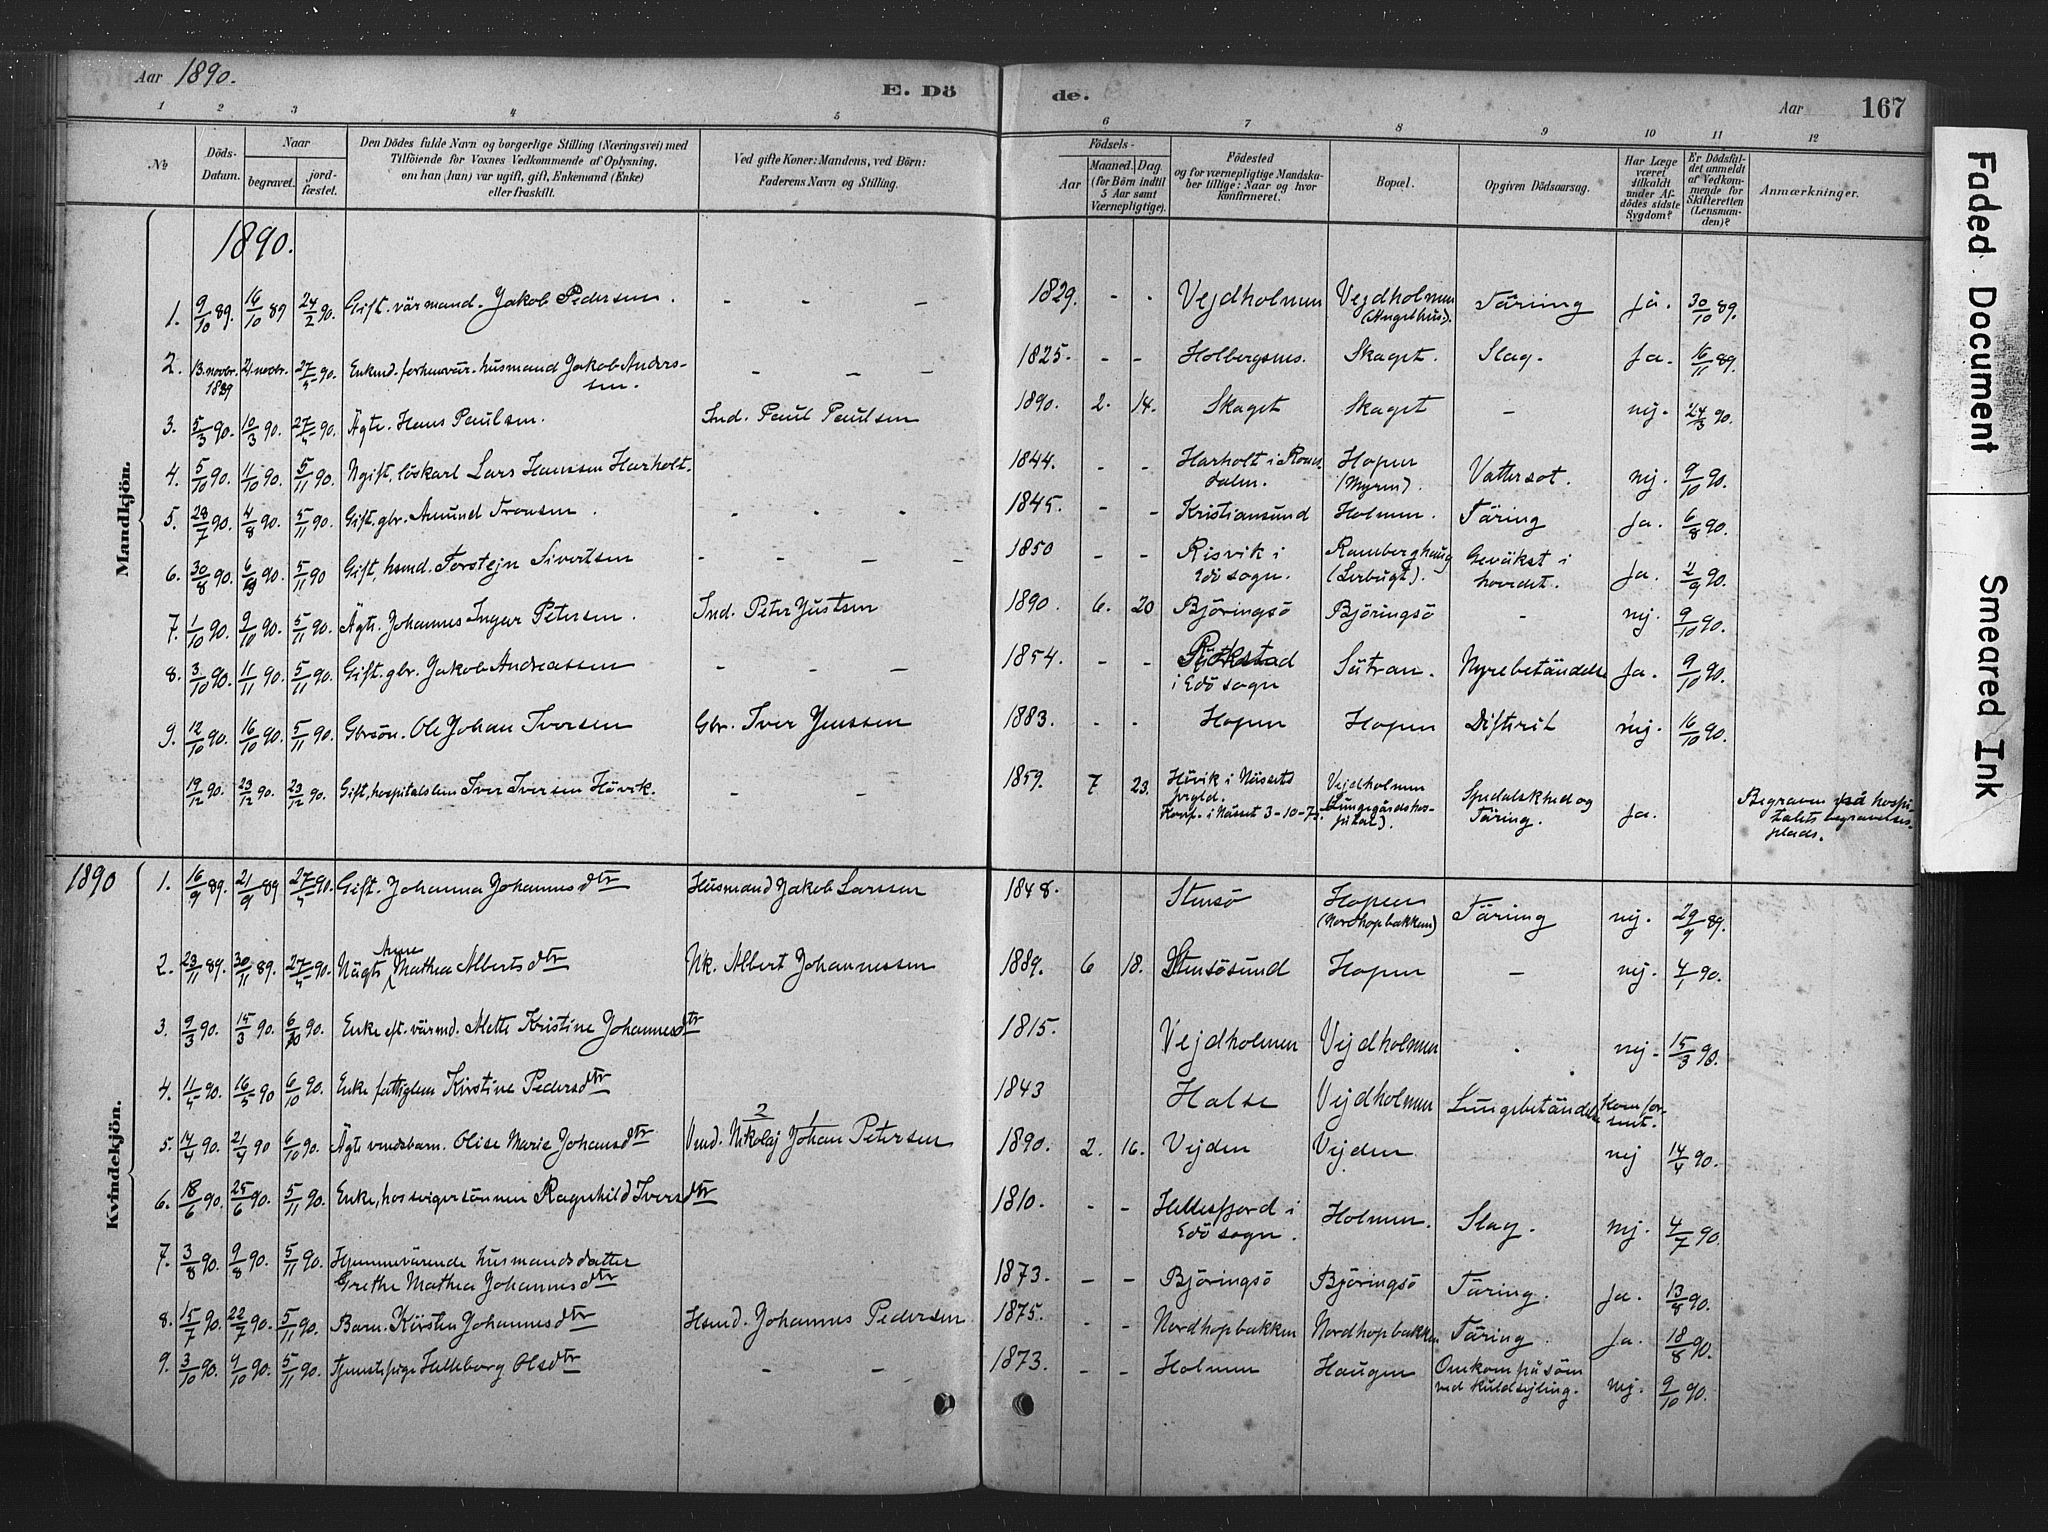 Aar 1890.
E. Dö
de.
Aar
167
1 2 3 4 5 6 7 8 9 10 11 12
No
Döds-Datum.
Naar
begravet.
jord-fæstet.
Den Dödes fulde Navn og borgerlige Stilling (Næringsvei) med
Tilföiende for Voxnes Vedkommende af Oplysning,
om han (hun) var ugift, gift, Enkemand (Enke)
eller fraskilt.
Ved gifte Koner: Mandens, ved Börn:
Faderens Navn og Stilling.
Födsels-
Aar
Maaned.
Dag.
(for Börn indtil
5 Aar samt
Værnepligtige).
Födested
og for værnepligtige Mandska-
ber tillige: Naar og hvor
konfirmeret.
Bopæl.
Opgiven Dödsaarsag.
Har Læge
været
tilkaldt
under Af-
dödes sidste
Sygdom?
Er Dödsfal-
det anmeldt
af Vedkom-
mende for
Skifteretten
(Lensman-
den)?
Anmærkninger.
Mandkjön.
1890.
1. 9/10 89. 16/10 89 24/2 90. Gift. värmand. Jakob Pedersen. - - - 1829. - - Vejdholmen Vejdholmen Täring Ja. 30/10 89.
2. 13. novbr. 1889 21. novbr. 27/5 90. Enkmd. forhenvär. husmand Jakob Anders-
sen. - - - 1825. - - Holbergsnes. Skaget. Slag. Ja. 16/11 89.
3. 5/3 90. 10/3 90. 27/5 90. Ägte. Hans Paulsen. Ind. Paul Paulsen 1890. 2. 14. Skaget Skaget - nej. 24/3 90.
4. 5/10 90. 11/10 90. 5/11 90. Ugift. löskarl Lars Hanssen Harholt. 1844. - - Harholt i Roms-
dalen. Hopen
(Myren). Vattersot. nej. 9/10 90.
5. 28/7 90. 4/8 90. 5/11 90. Gift. gbr. Amund Tronsen. - - - 1845. - - Kristiansund Holmen. Täring Ja. 6/8 90.
6. 30/8 90. 6/9 90. 5/11 90 Gift, hsmd. Torstejn Sivertsen - - - - 1850 - - Risvik i
Edö sogn. Ramberghaug
(Lerbugt). Geväkst i
hovedet. Ja. 2/9 90.
7. 1/10 90. 9/10 90. 5/11 90. Ägte. Johannes Ingar Petersen. Ind. Peter Justsen 1890. 6. 20 Björingsö Björingsö - nej. 9/10 90.
8. 3/10 90. 11/11 90. 5/11 90. Gift. gbr. Jakob Andreassen - - - 1854. - - i Edö sogn Sätran. Nyrebetändelse Ja. 9/10 90.
9. 12/10 90. 16/10 90. 5/11 90. Gbrsön. Ole Johan Iversen Gbr. Iver Jenssen 1883. - - Hopen Hopen Difterit nej. 16/10 90.
19/12 90. 23/12 90. 23/12 90. Gift, hospitalslem Iver Iversen Hövik. - - 1859. 7 23. Hövik i Nässets
prgld.
Konf. i Nässet 3-10-7 Vejdholmen
(Lungegårdshos-
pital). Spedalskhed og
Täring. Ja. Begraven på hospi-
talets begravelses-
plads.
Kvindekjön.
1890 1. 16/9 89. 21/9 89 27/5 90. Gift. Johanna Johannesdtr Husmand Jakob Larssen 1848. Stensö Hopen
(Nordhopbakken) Täring nej. 29/9 89.
2. 23/11 89. 30/11 89. 27/5 90. Uägte Anne Mathea Albertsdtr Uk. Albert Johannessen 1889. 6 18. Stensösund Hopen - nej. 4/1 90.
3. 9/3 90. 15/3 90. 6/10 90. Enke eft. värmd. Mette Kristine Johannesdtr 1815. Vejdholmen Vejdholmen - nej. 15/3 90.
4. 11/5 90. 16/5 90 6/10 90. Enke fattiglem Kirstine Pedersdtr 1843 Halse Vejdholmen Lungebetändelse Kom for-
sent.
5. 14/4 90. 21/4 90 6/10 90. Ägte Olise Marie Johansdtr Nikolaj Johan Petersen 1890. 2. 16. Vejden Vejden nej 14/4 90.
6. 18/6 90. 25/6 90. 5/11 90. Enke, hos svigersönnen Ragnhild Iversdtr 1810. - - Hellesfjord i
Edö sogn. Holmen. Slag. nej. 4/7 90.
7. 3/8 90. 9/8 90. 5/11 90. Hjemmevärende husmandsdatter
Grethe Mathea Johannesdtr 1873. - - Björingsö Björingsö Täring. Ja. 13/8 90.
8. 15/7 90. 22/7 90. 5/11 90. Barn. Kirsten Johannesdtr Hsmd. Johannes Pedersen 1875. - - Nordhopbakken Nordhopbakken Täring. Ja. 18/8 90.
9. 3/10 90. 9/10 90. 5/11 90. Tjenestepige Helleborg Olsdtr - - 1873. - - Holmen Haugen Omkom på söen
ved kuldsejling. nej. 9/10 90.
Faded Document
Smeared Ink